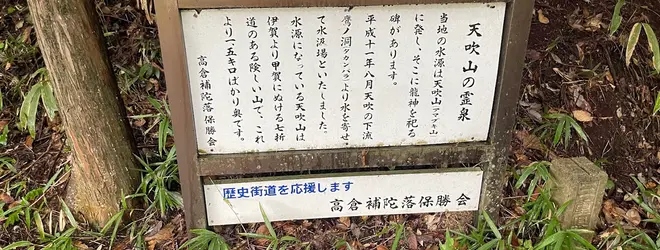 天吹山の霊泉
当地の水源は天吹山(アマブキ山)
に発し、そこに龍神を祀る
碑があります。
平成十一年八月天吹の下流
鷹ノ洞(タカンバラ)より水を寄せ
て水汲場といたしました。
水源になっている天吹山は
伊賀より甲賀にぬける七折
道のある険しい山で、これ
より一五キロばかり奥です。
高倉補陀落保勝会
歴史街道を応援します
高倉補陀落保勝会